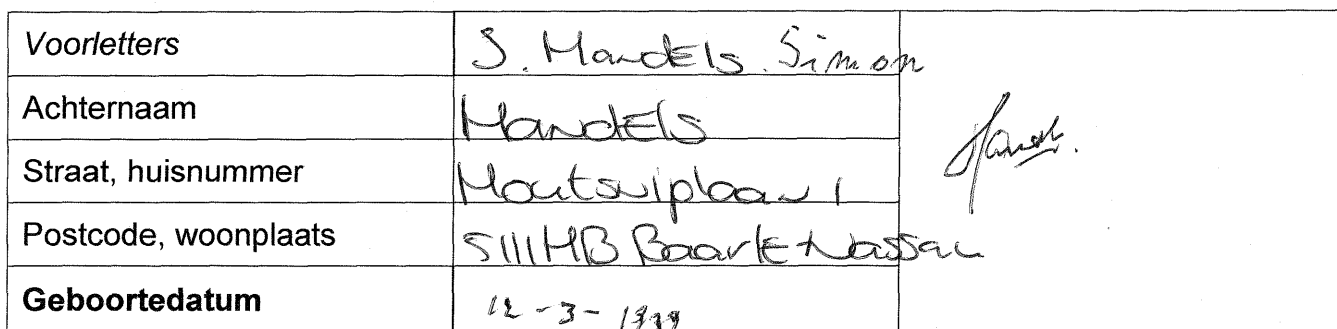 Voorletters S. Mandels. Simon
Achternaam Mandels
Straat, huisnummer Houtsniplaan 1
Postcode, woonplaats 5111HB Baarle Nassau
Geboortedatum 12-3-